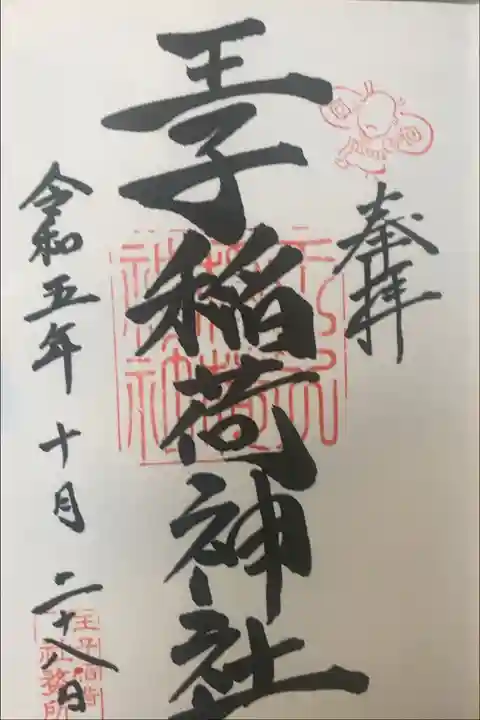 奉拝
王子稲荷神社
令和五年十月二十八日
王子稲荷
社務所